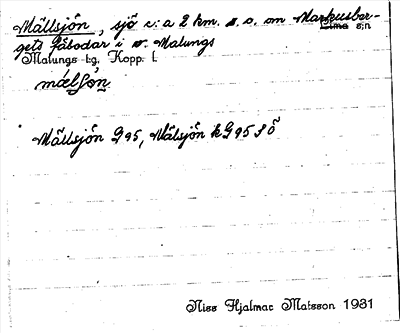 Mällsjön, sjö c:a 2 km. s. o. om Markusber-
gets fäbodar i v. Malungs Lima s:n
Malungs tg. Kopp. l.
mælʃøn
Mällsjön G 95, Mälsjön k G 95 S Ö
Niss Hjalmar Matsson 1931